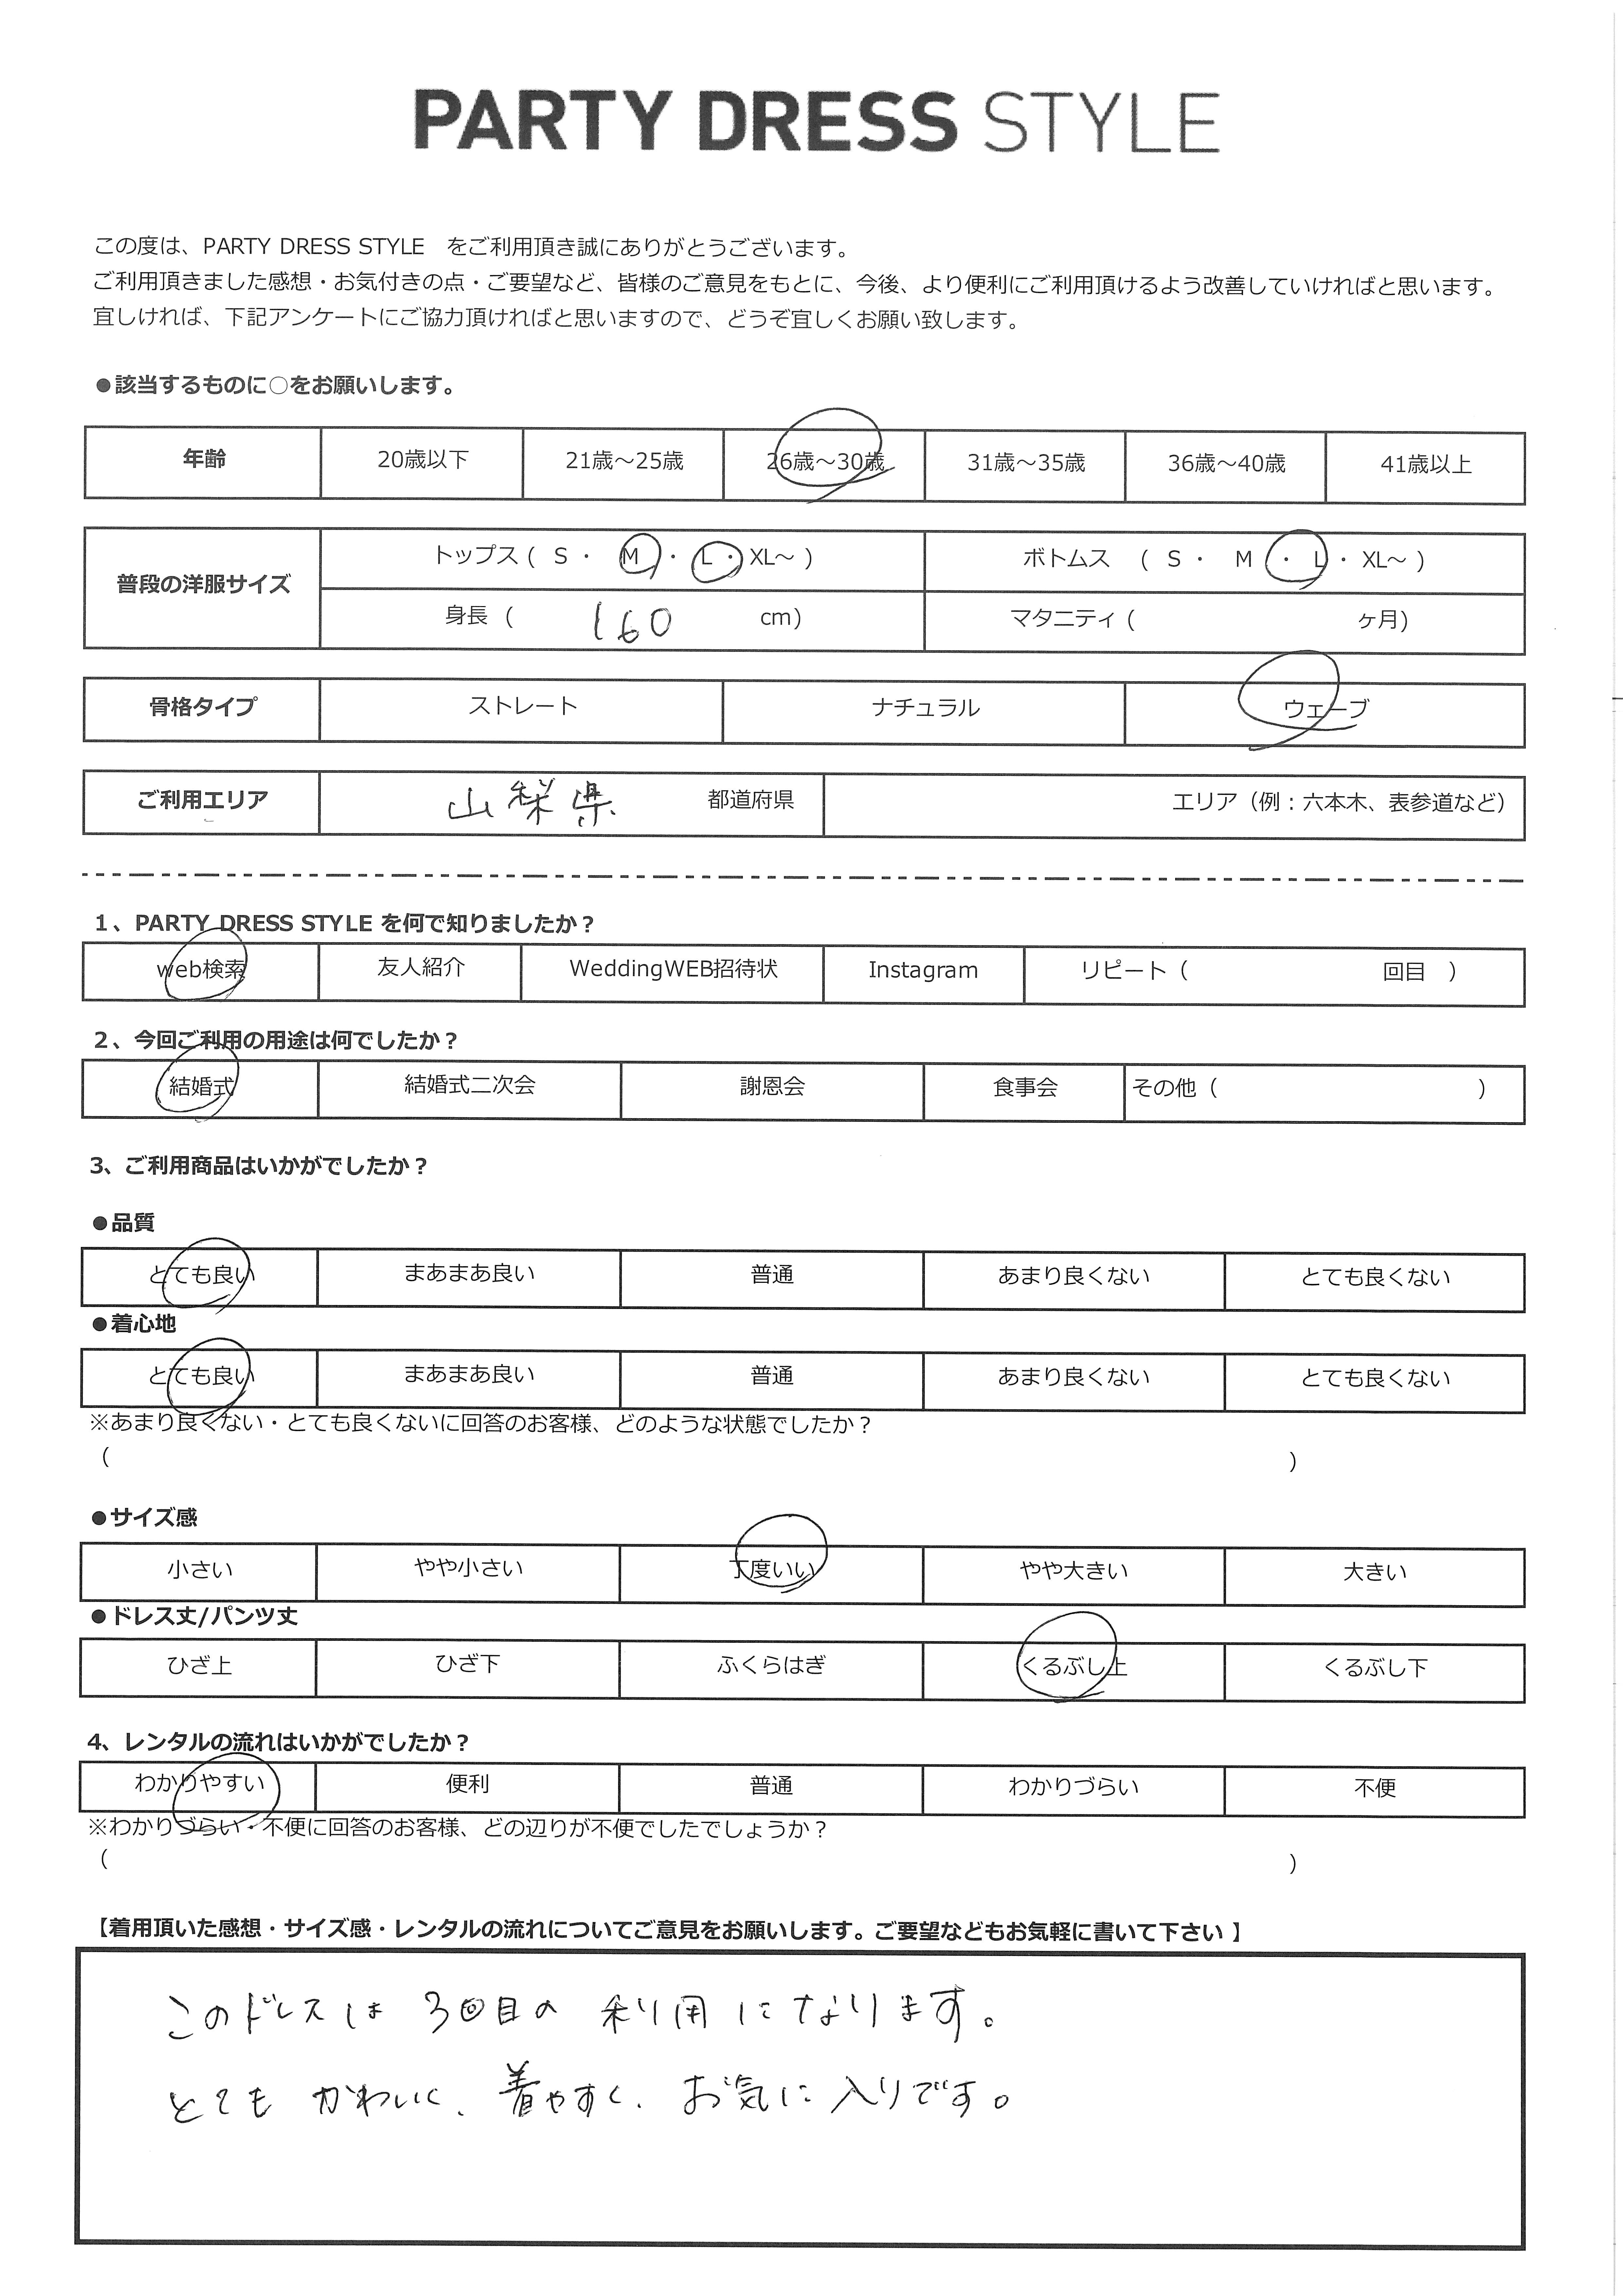 PARTY DRESS STYLE
この度は、PARTY DRESS STYLE　をご利用頂き誠にありがとうございます。
ご利用頂きました感想・お気付きの点・ご要望など、皆様のご意見をもとに、今後、より便利にご利用頂けるよう改善していければと思います。
宜しければ、下記アンケートにご協力頂ければと思いますので、どうぞ宜しくお願い致します。
●該当するものに○をお願いします。
年齢 20歳以下 21歳～25歳 26歳～30歳 31歳～35歳 36歳～40歳 41歳以上
普段の洋服サイズ トップス ( S ・ M ・ L ・ XL～ ) ボトムス ( S ・ M ・ L ・ XL～ )
身長 ( 160 cm) マタニティ ( ヶ月)
骨格タイプ ストレート ナチュラル ウェーブ
ご利用エリア 山梨県 都道府県 エリア（例：六本木、表参道など）
1、PARTY DRESS STYLE を何で知りましたか？
web検索 友人紹介 WeddingWEB招待状 Instagram リピート（ 回目 ）
2、今回ご利用の用途は何でしたか？
結婚式 結婚式二次会 謝恩会 食事会 その他（ ）
3、ご利用商品はいかがでしたか？
●品質
とても良い まあまあ良い 普通 あまり良くない とても良くない
●着心地
とても良い まあまあ良い 普通 あまり良くない とても良くない
※あまり良くない・とても良くないに回答のお客様、どのような状態でしたか？
（ ）
●サイズ感
小さい やや小さい 丁度いい やや大きい 大きい
●ドレス丈/パンツ丈
ひざ上 ひざ下 ふくらはぎ くるぶし上 くるぶし下
4、レンタルの流れはいかがでしたか？
わかりやすい 便利 普通 わかりづらい 不便
※わかりづらい・不便に回答のお客様、どの辺りが不便でしたでしょうか？
（ ）
【着用頂いた感想・サイズ感・レンタルの流れについてご意見をお願いします。ご要望などもお気軽に書いて下さい 】
このドレスは 3回目の 利用になります。
とても かわいく、着やすく、お気に入りです。